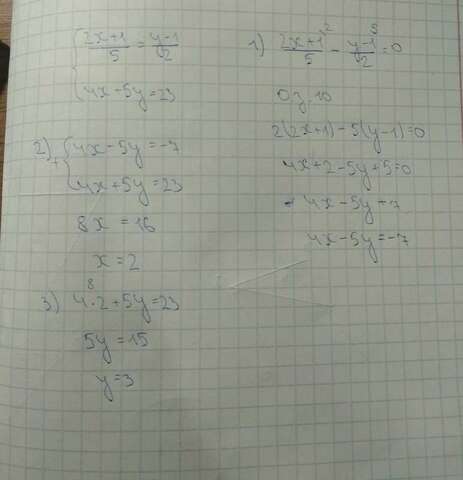 (2x+1)/5 = (y-1)/2
4x-5y=23
1) (2x+1)/5 ² - (y-1)/2 ⁵ =0
О.з. 10
2(2x+1)-5(y-1)=0
4x+2-5y+5=0
4x-5y+7
4x-5y=-7
2) + { 4x-5y=-7
4x+5y=23
8x = 16
x=2
3) 4·2 ⁸ +5y=23
5y=15
y=3